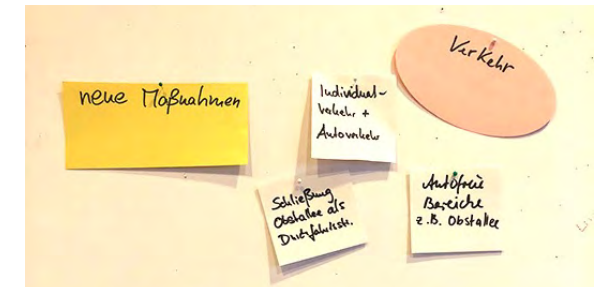 neue Maßnahmen
Individual-
verkehr +
Autoverkehr
Verkehr
Schließung
Obstallee als
Durchfahrtsstr.
Autofreie
Bereiche
z.B. Obstallee